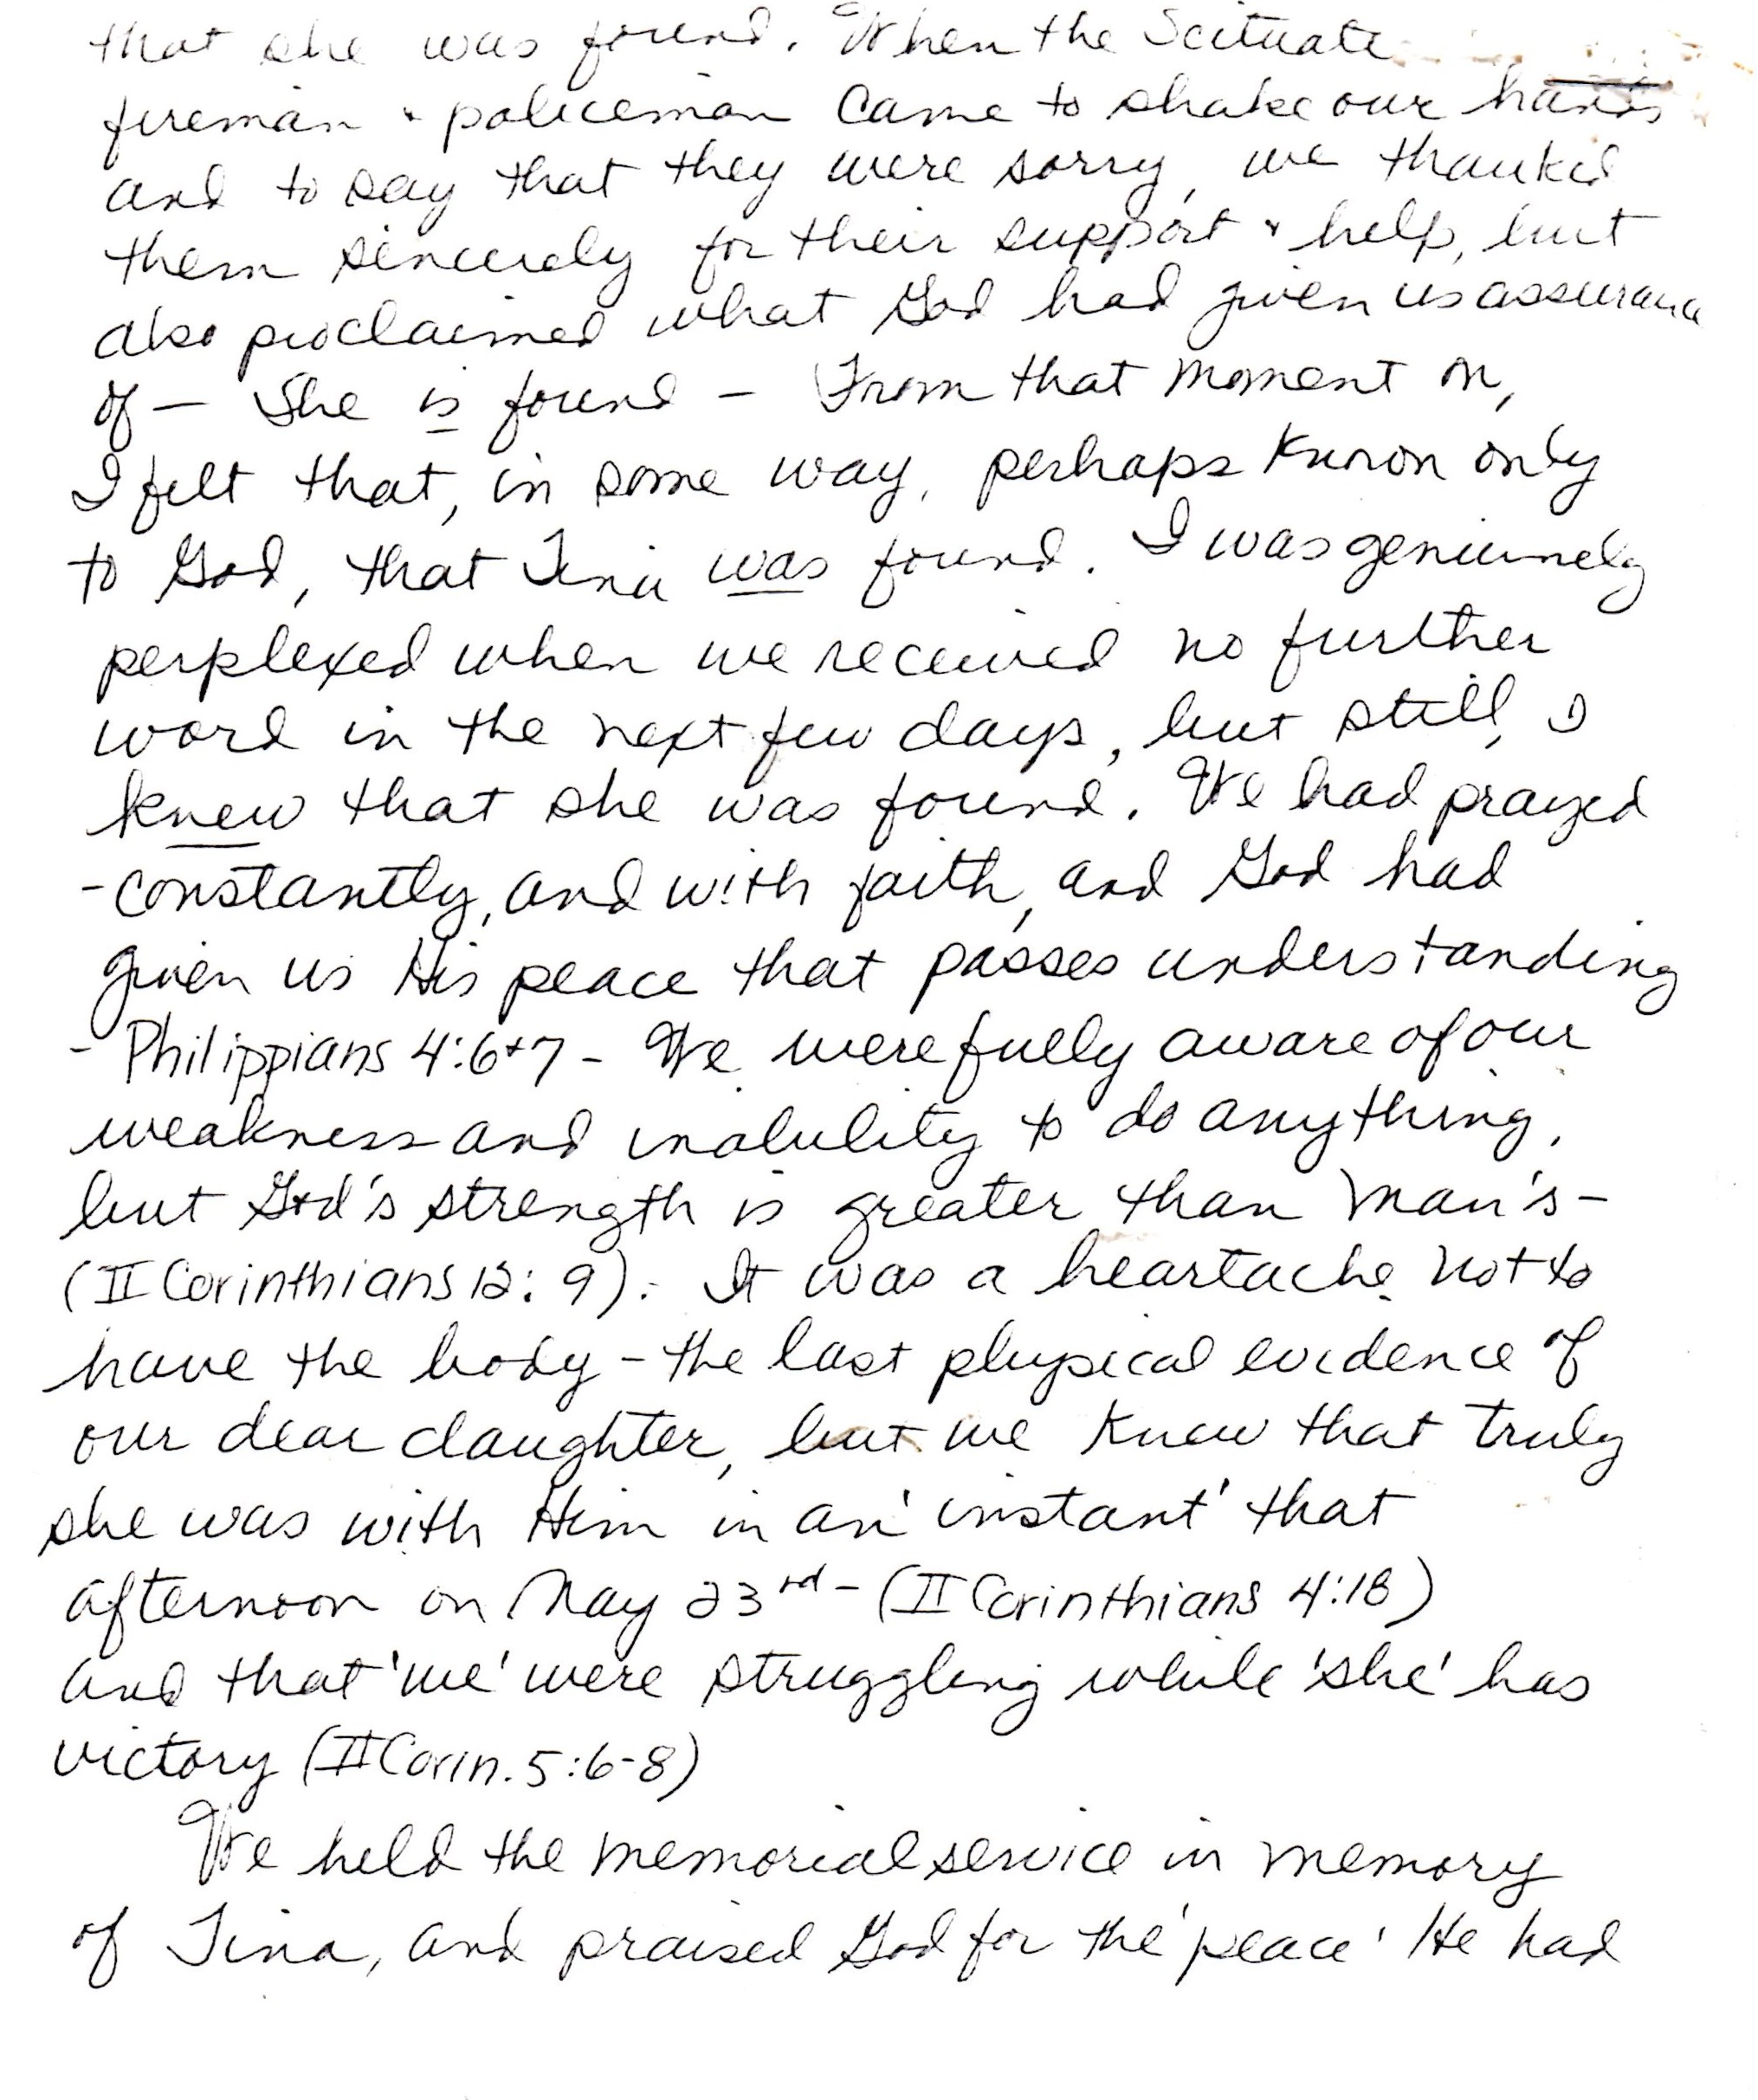 that she was found. When the Scituate
fireman & policeman came to shake our hands
and to say that they were sorry, we thanked
them sincerely for their support & help, but
also proclaimed what God had given us assurance
of — She is found — From that moment on,
I felt that, in some way, perhaps known only
to God, that Tina was found. I was geniunely
perplexed when we received no further
word in the next few days, but still, I
knew that she was found. We had prayed
- constantly, and with faith, and God had
given us His peace that passes understanding
- Philippians 4:6+7 - We were fully aware of our
weakness and inability to do anything,
but God's strength is greater than man's -
(II Corinthians 12:9). It was a heartache not to
have the body - the last physical evidence of
our dear daughter, but we knew that truly
she was with Him in an 'instant' that
afternoon on May 23rd - (II Corinthians 4:18)
and that 'we' were struggling while 'she' has
victory (II Corin. 5:6-8)
We held the memorial service in memory
of Tina, and praised God for the 'peace' He had